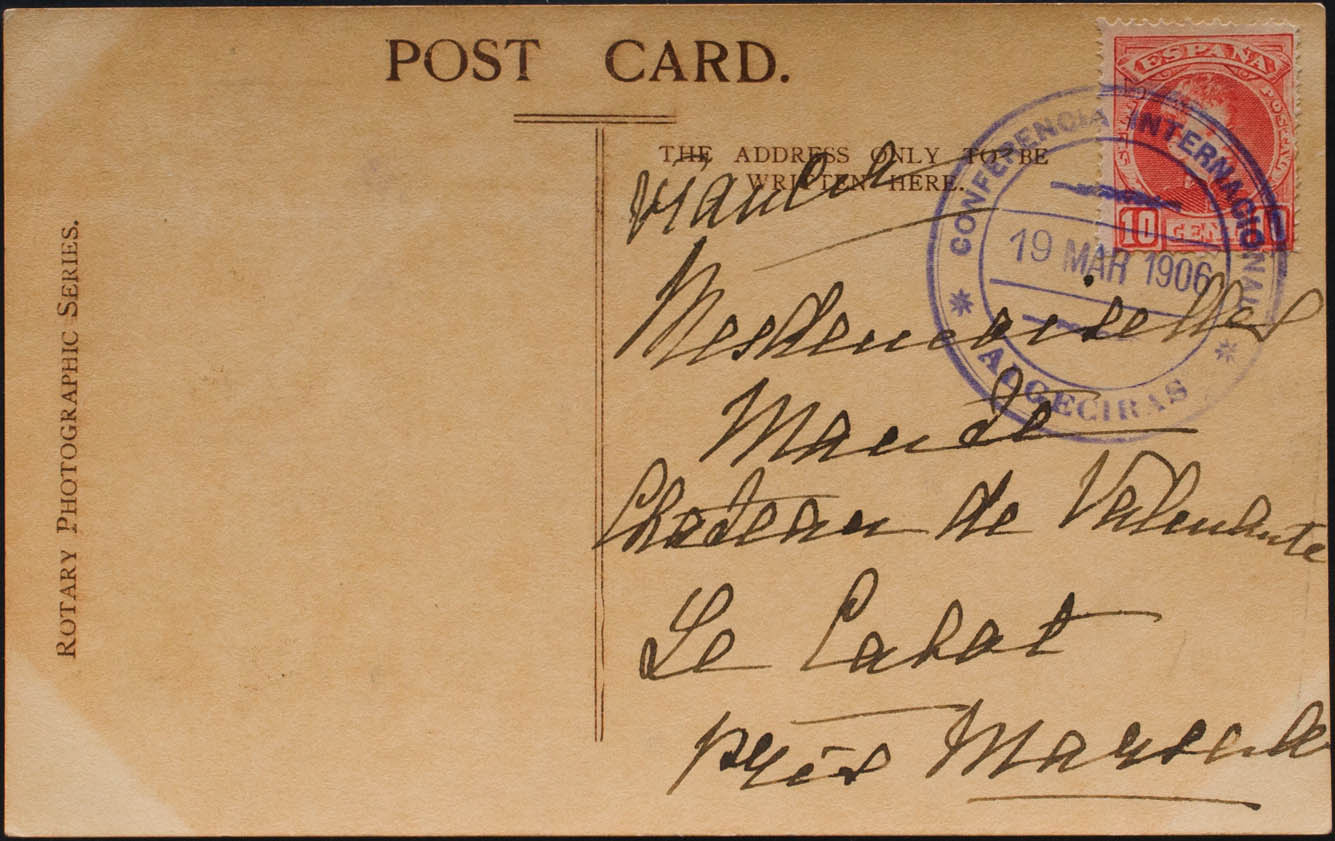 POST CARD.
THE ADDRESS ONLY TO BE
WRITTEN HERE.
ESPAÑA
10 CENT
CONFERENCIA INTERNACIONAL
19 MAR 1906
ALGECIRAS
Mesdemoiselles
Maude
Chateau de
Le Cabot
près Marseille
ROTARY PHOTOGRAPHIC SERIES.